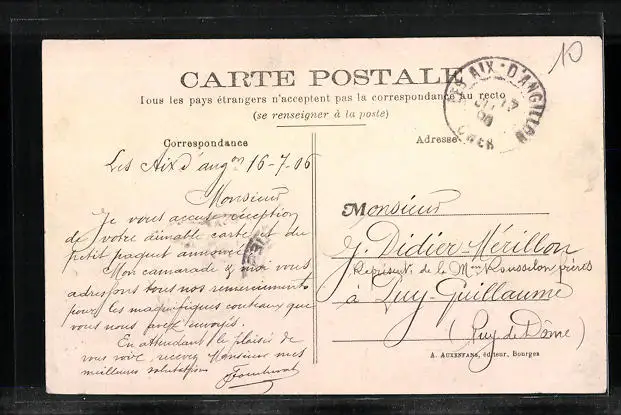 10
CARTE POSTALE
Tous les pays étrangers n'acceptent pas la correspondance au recto
(se renseigner à la poste)
LES AIX-D'ANGILLON
17
06
CHER
Correspondance
Adresse
Les Aix d'angon 16-7-06
Monsieur
Je vous accuse réception
de votre aimable carte et du
petit paquet annoncé.
Mon camarade & moi vous
adressons tous nos remerciements
pour les magnifiques couteaux que
vous nous avez envoyés.
En attendant le plaisir de
vous voir, recevez Monsieur mes
meilleures salutations
Monsieur
J. Didier-Mérillon
Représent. de la Mon Roussilon frères
à Puy-Guillaume
(Puy de Dôme)
A. AUXENFANS, éditeur, Bourges